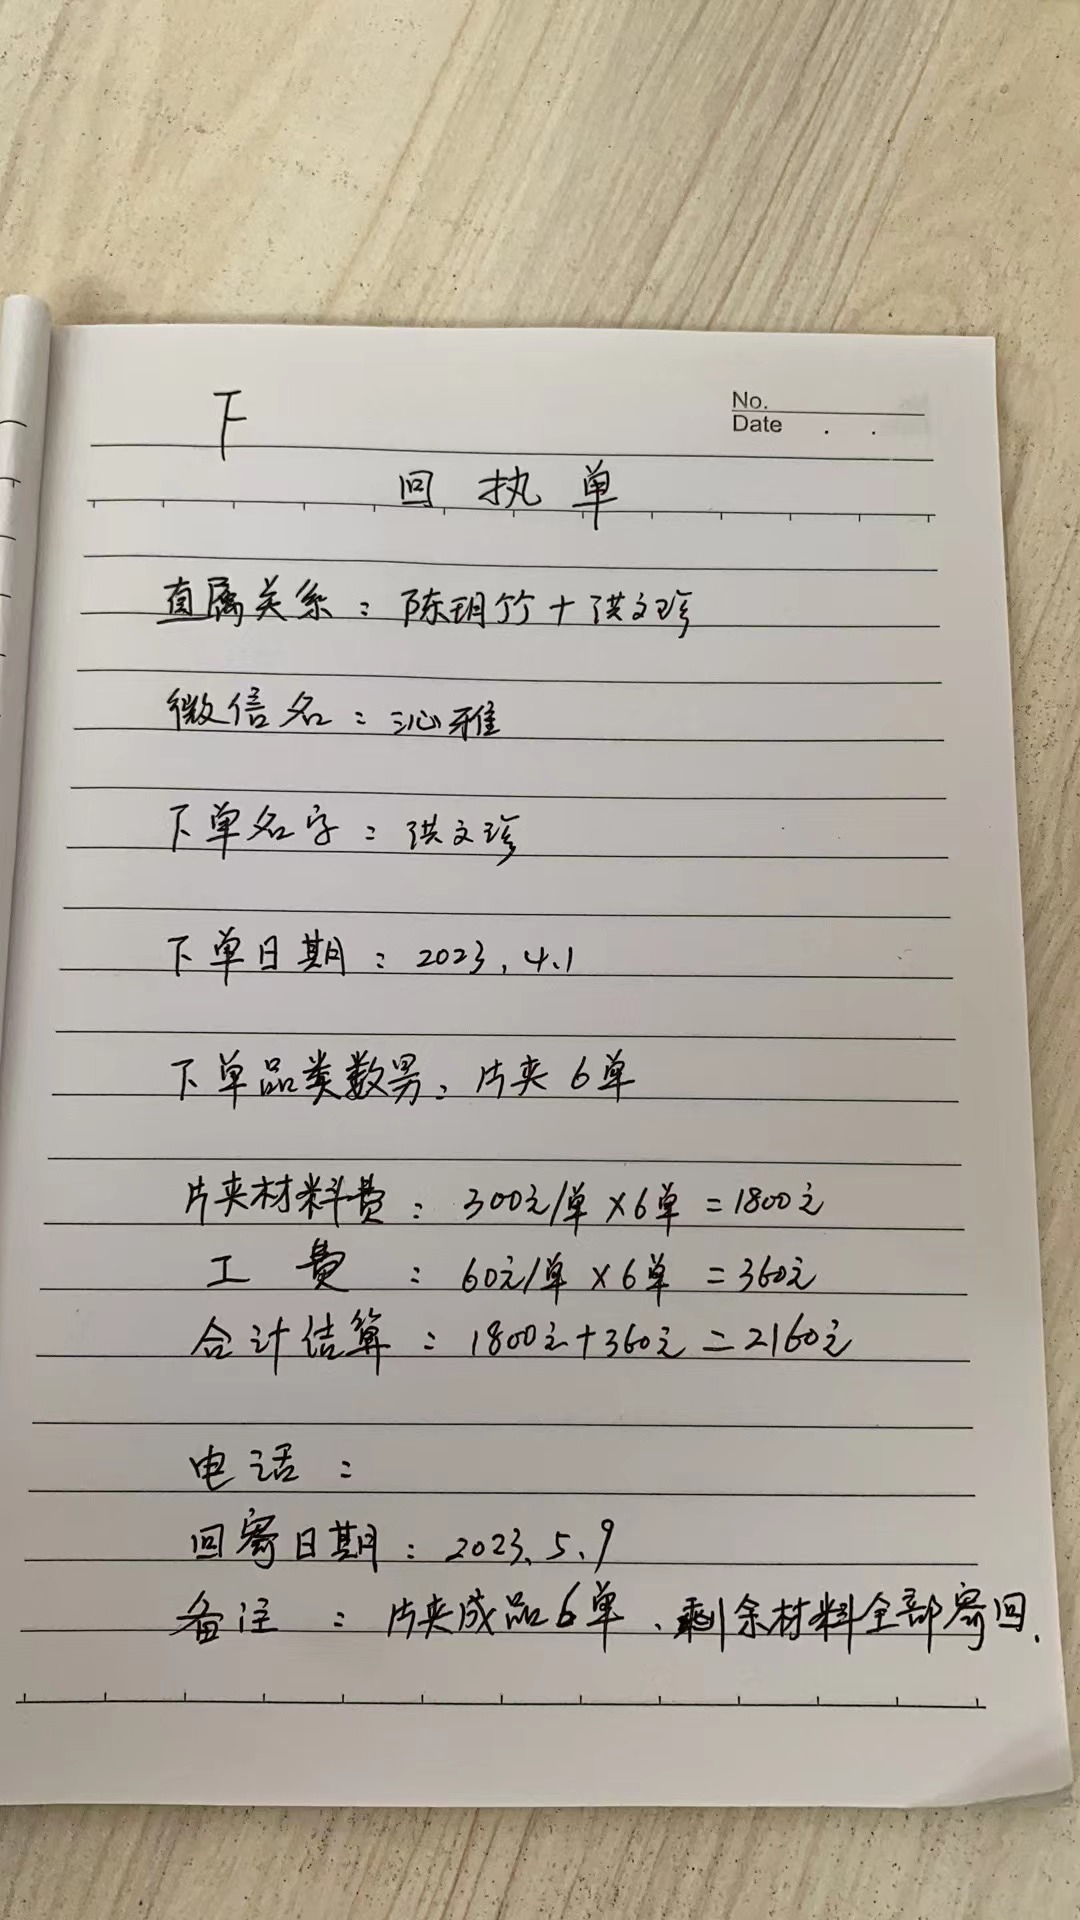 No.
Date . .
下
回执单
直属关系：陈玥竹+洪文珍
微信名：沁雅
下单名字：洪文珍
下单日期：2023.4.1
下单品类数男：片夹6单
片夹材料费：300元/单×6单=1800元
工费：60元/单×6单=360元
合计结算：1800元+360元=2160元
电话：
回寄日期：2023.5.9
备注：片夹成品6单、剩余材料全部寄回.